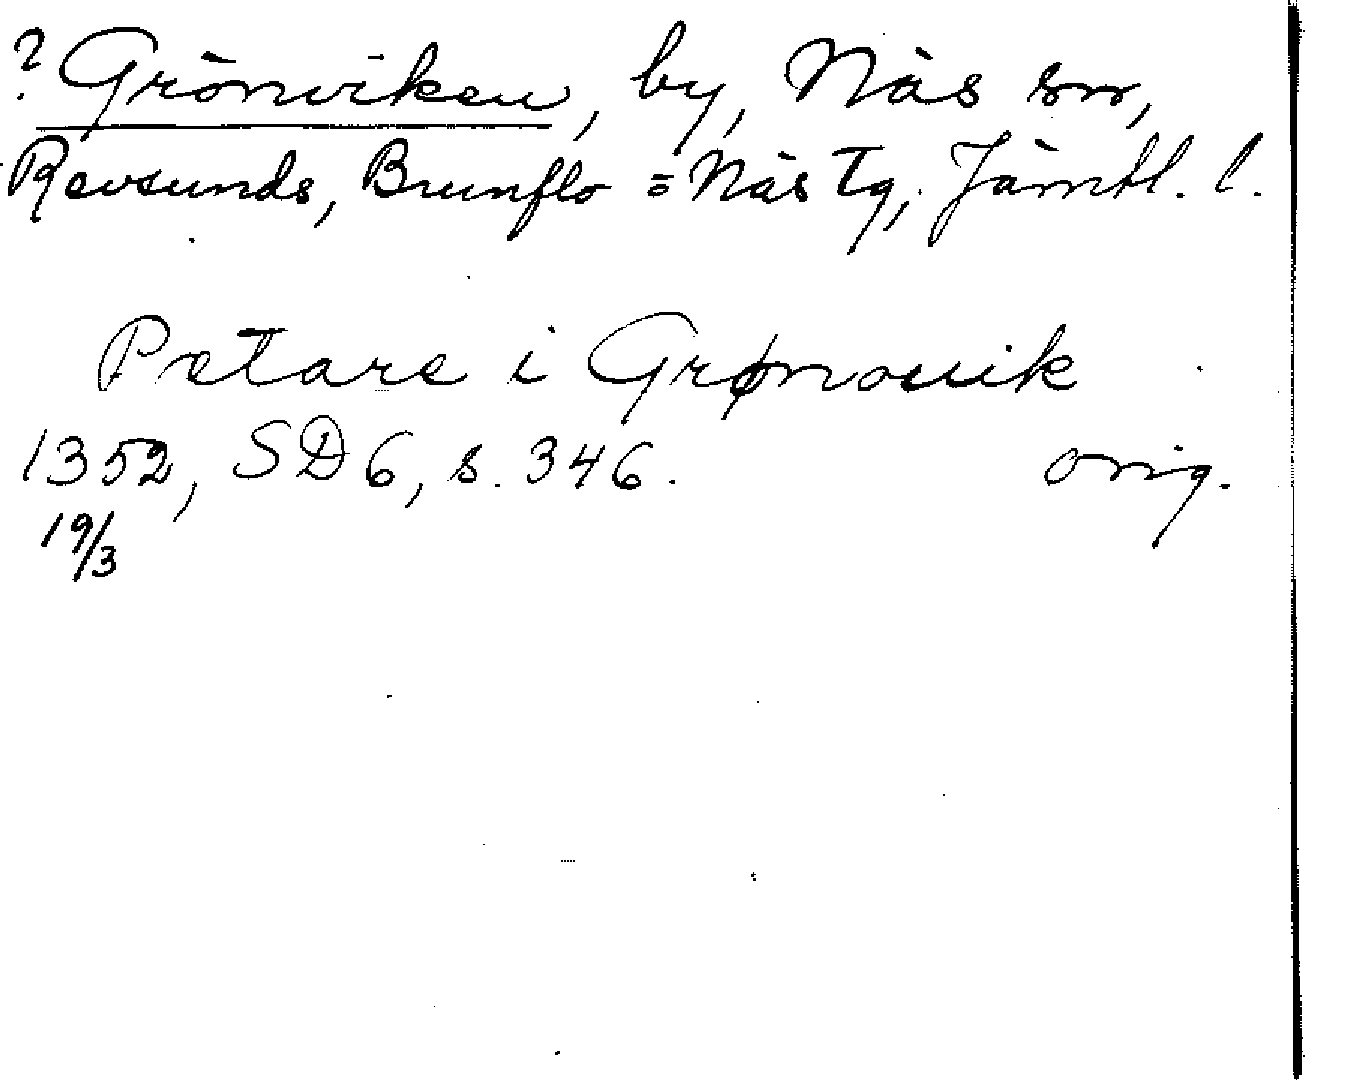 ? Grönviken, by, Näs sn,
Revsunds, Brunflo = Näs Tg, Jämtl. l.
Petare i Grønouik
1352, SD 6, s. 346. orig.
19/3